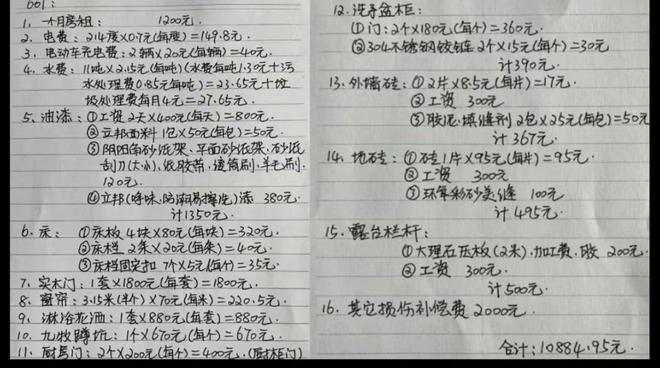 601:
1. 一个月房租: 1200元.
2. 电费: 214度×0.7元(每度)=149.8元.
3. 电动车充电费: 2辆×20元(每辆)=40元.
4. 水费: 11吨×2.15元(每吨)(水费每吨1.30元+污
水处理费0.85元每吨)=23.65元+垃
圾处理费每月4元=27.65元.
5. 油漆: ①工资 2天×400元(每天)=800元.
②立邦面料 1包×50元(每包)=50元.
③阴阳角砂纸架、平面砂纸架、砂纸
刮刀(大小)、纸胶带、滚筒刷、羊毛刷.
120元.
④立邦(哆咪、防潮易擦洗)漆 380元.
计1350元.
6. 床: ①床板 4块×80元(每块)=320元.
②床栏 2条×20元(每条)=40元.
③床栏固定扣 7个×5元(每个)=35元.
7. 实木门: 1套×1800元(每套)=1800元.
8. 窗帘: 3.15米(半个)×70元(每米)=220.5元.
9. 淋浴花洒: 1套×880元(每套)=880元.
10. 九牧蹲坑: 1个×670元(每个)=670元.
11. 厨房门: 2个×200元(每个)=400元.(厨柜门)
12. 洗手盆柜:
①门: 2个×180元(每个)=360元.
②304不锈钢铰链 2个×15元(每个)=30元
计390元.
13. 外墙砖: ①2片×8.5元(每片)=17元.
②工资 300元.
③胶泥、填缝剂 2包×25元(每包)=50元
计367元.
14. 地砖: ①砖 1片×95元(每片)=95元.
②工资 300元
③环氧彩砂美缝 100元
计495元.
15. 露台栏杆:
①大理石压板(2米)、加工费、胶 200元.
②工资 300元.
计500元.
16. 其它损伤补偿费 2000元.
合计: 10884.95元.